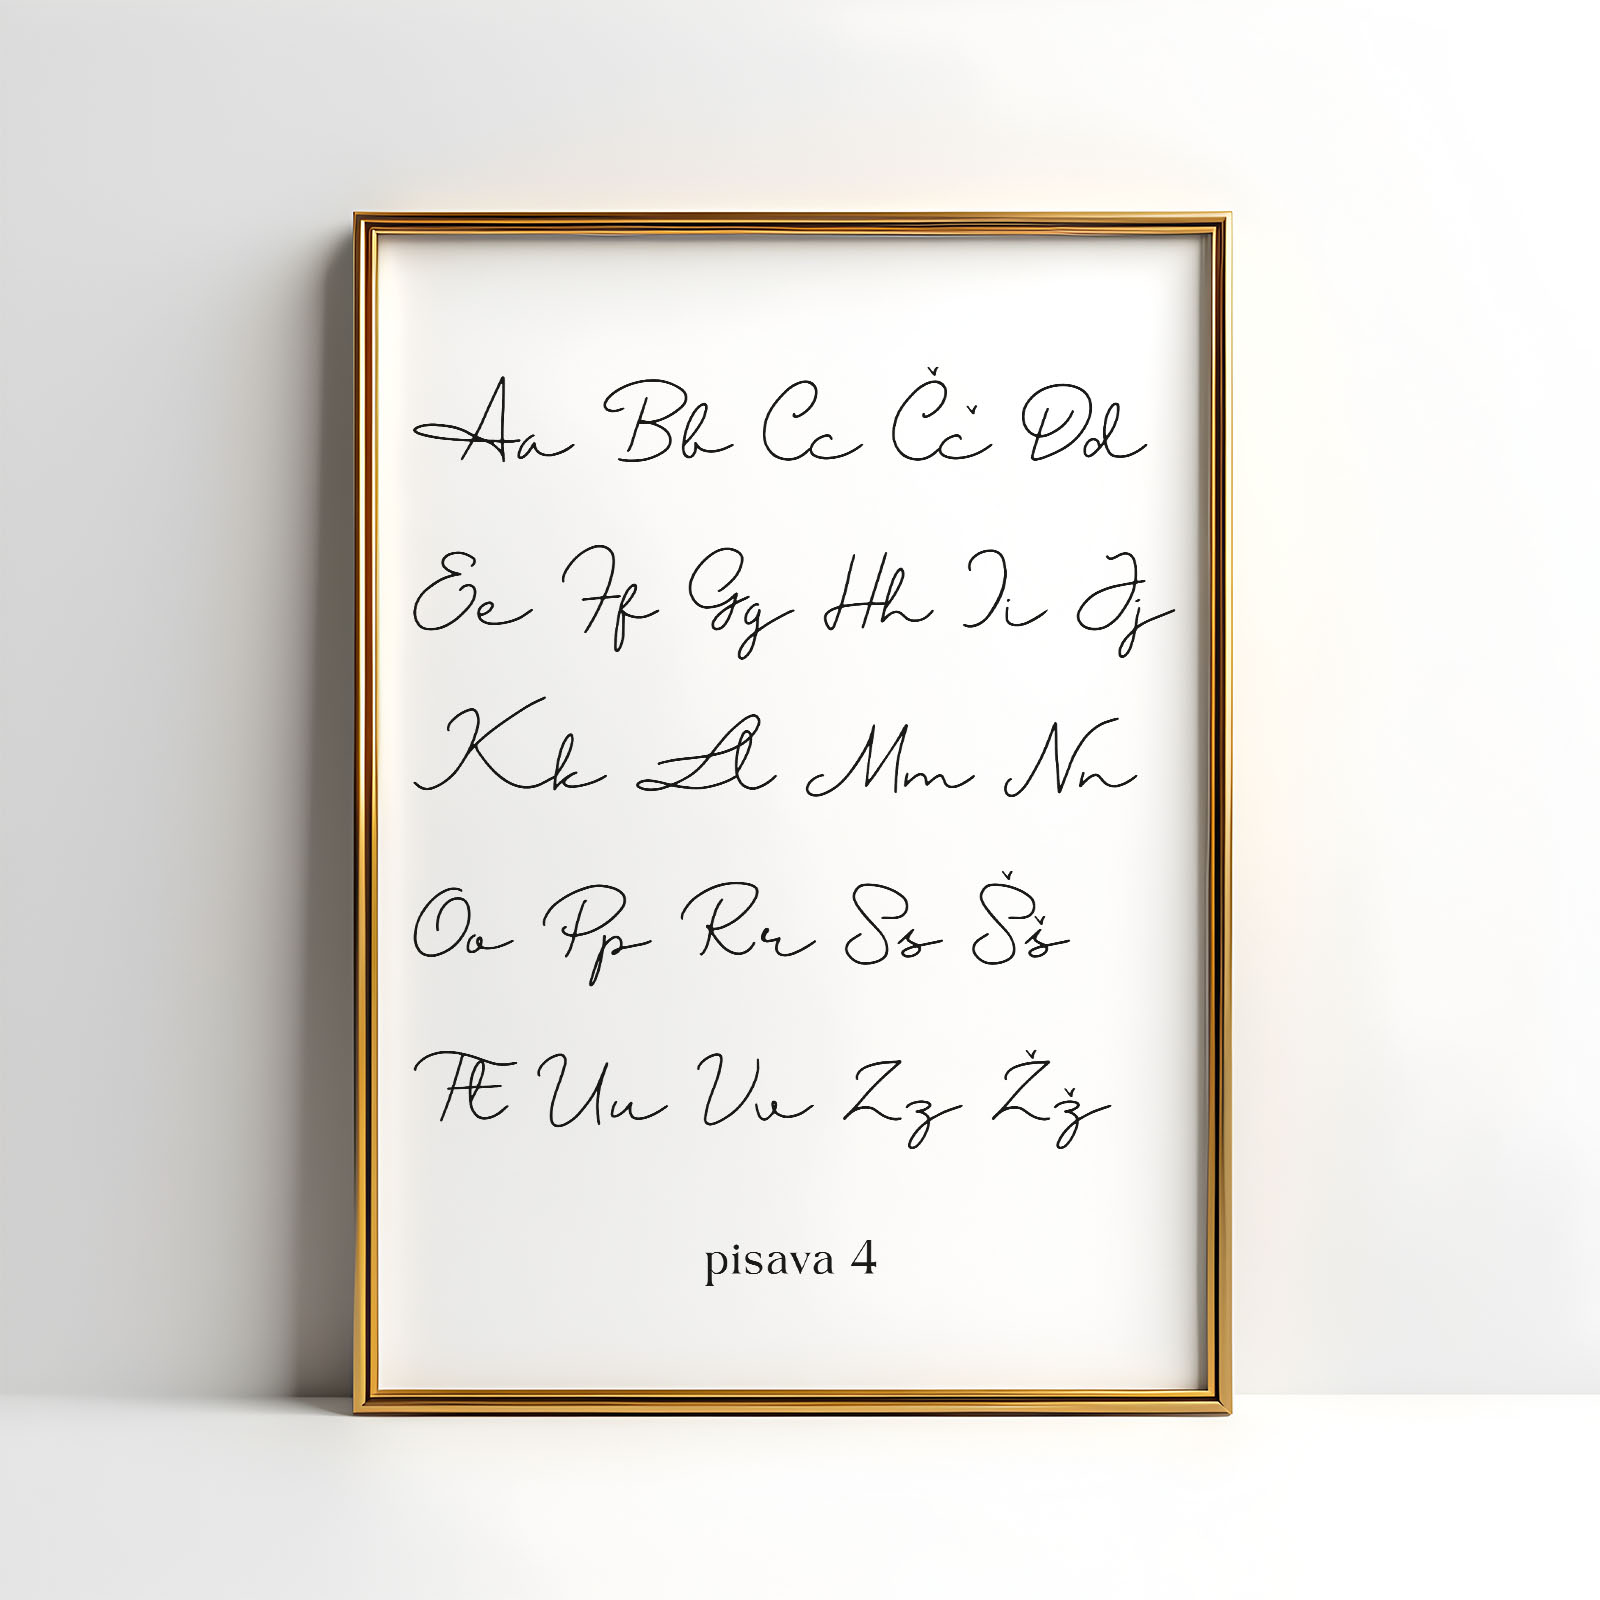 Aa Bb Cc Čč Dd
Ee Ff Gg Hh Ii Jj
Kk Ll Mm Nn
Oo Pp Rr Ss Šš
Tt Uu Vv Zz Žž
pisava 4